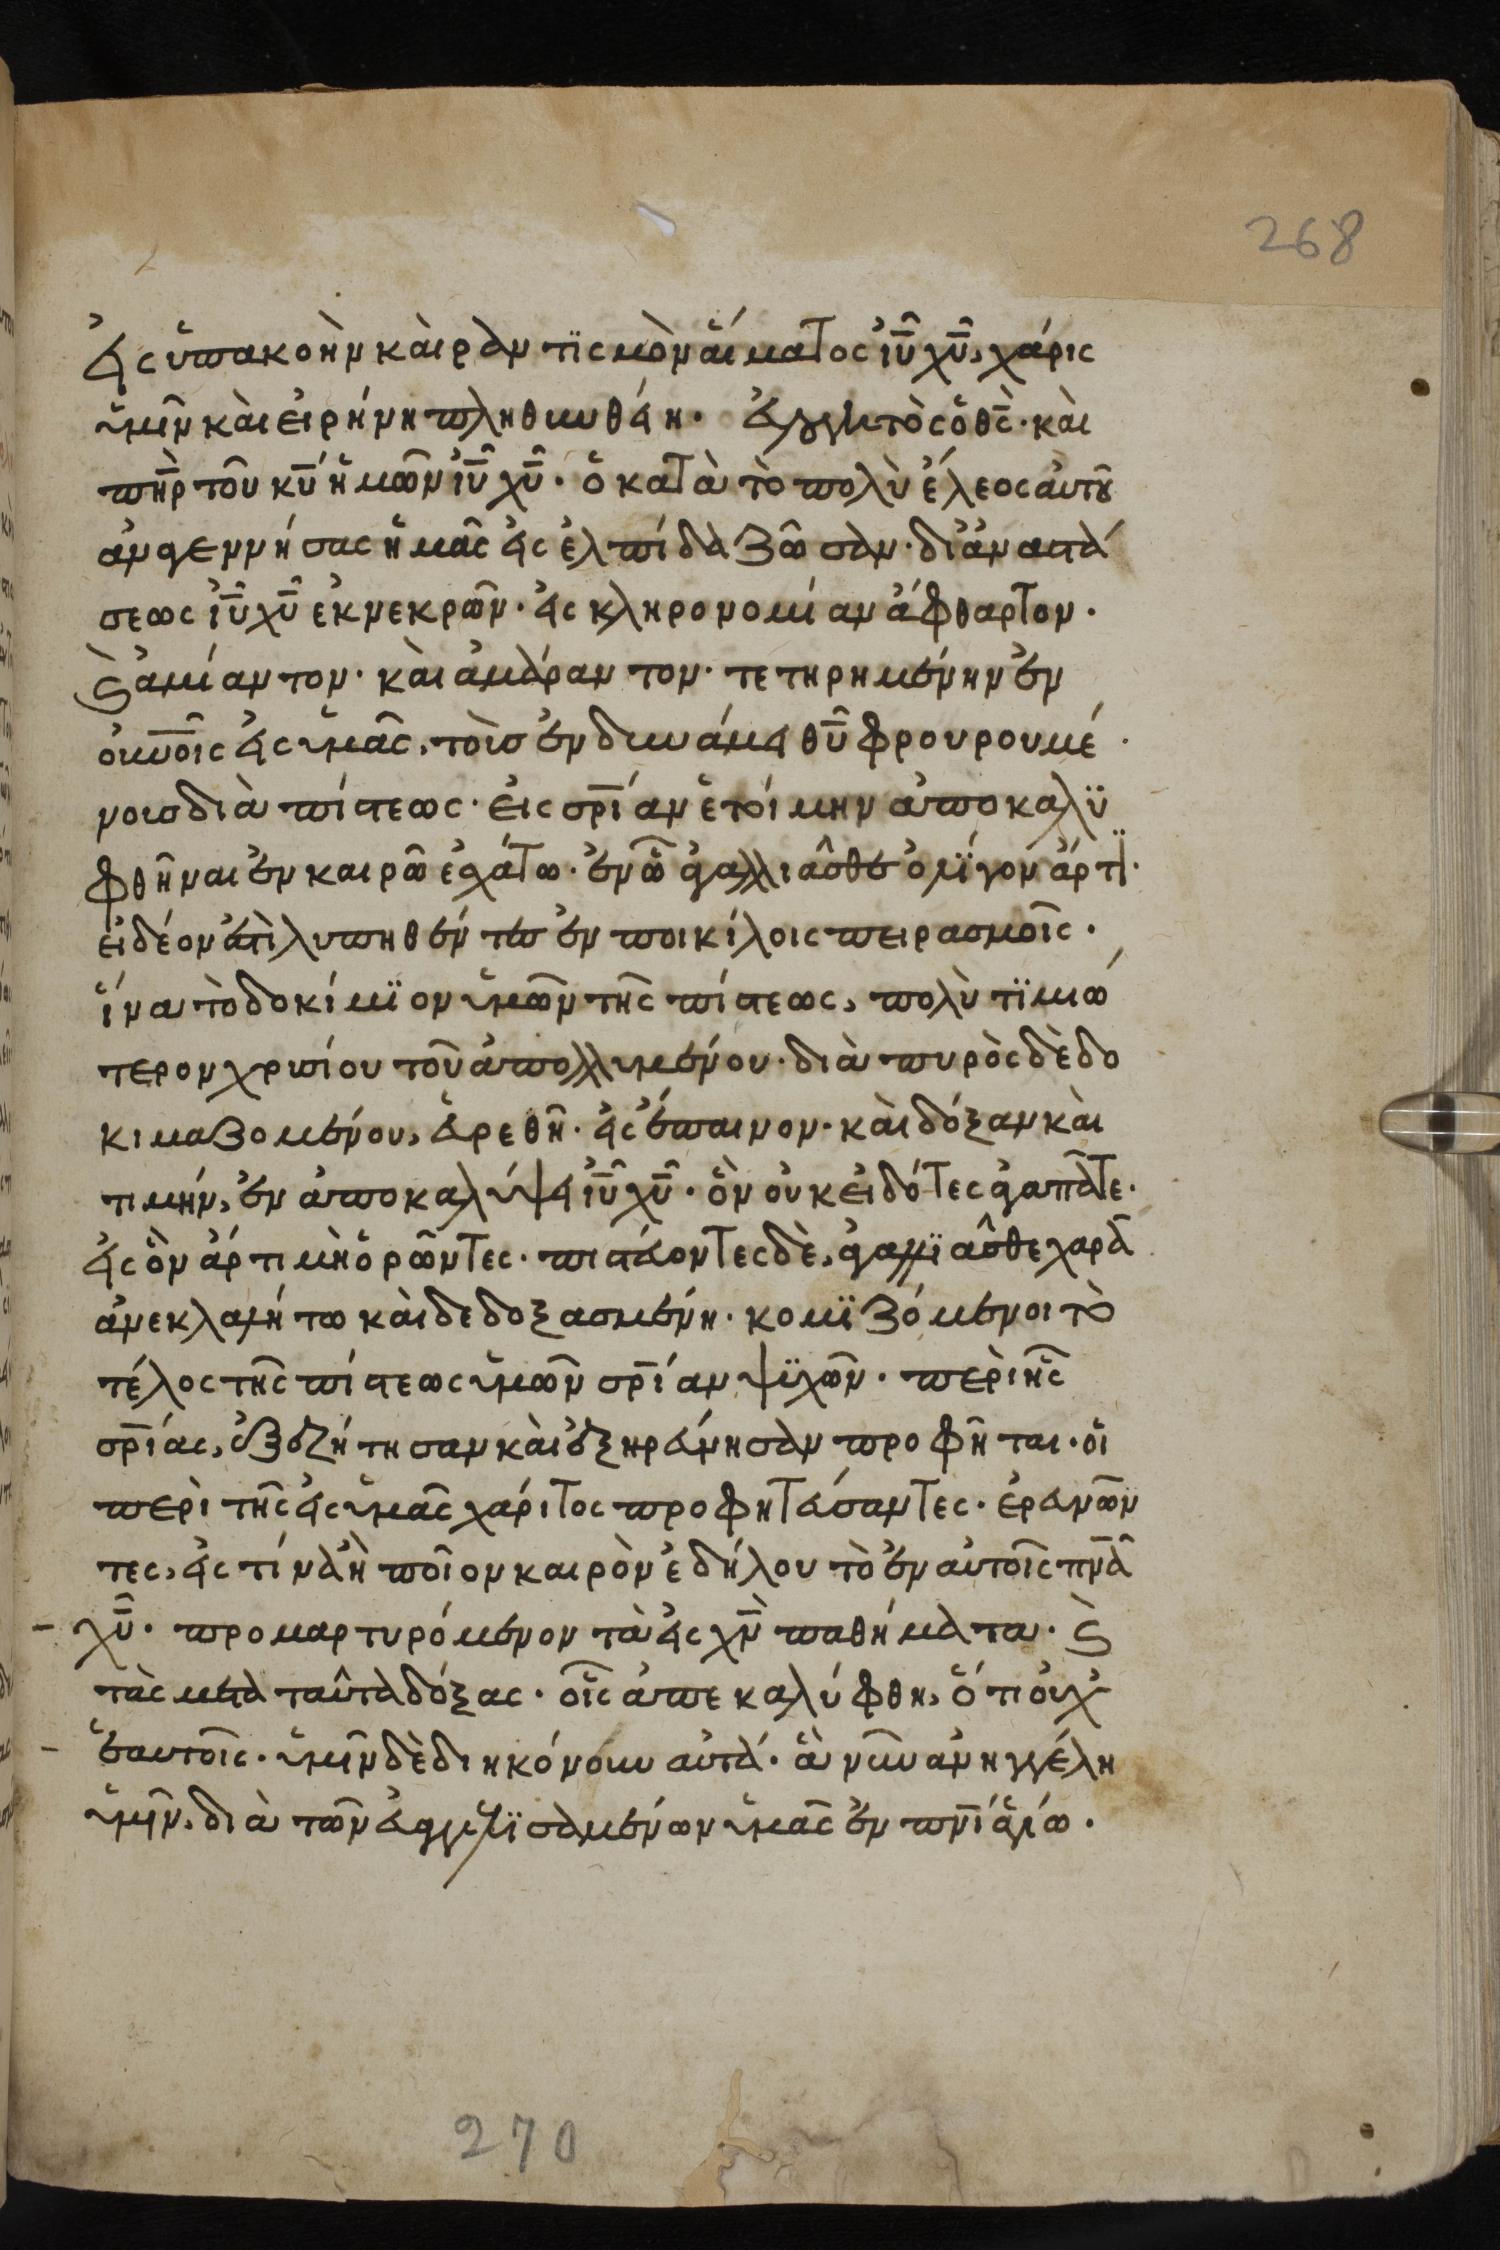 268
εἰς ὑπακοὴν καὶ ραντϊσμὸν αἵματος ἰῦ χῦ, χάρις
ὑμῖν καὶ εἰρήνη πληθυνθείη· εὐλογητὸς ὁ θς̄· καὶ
πη̄ρ τοῦ κῡ ἡμῶν ἰῦ χῦ· ὁ κατὰ τὸ πολὺ ἔλεος αὐτοῦ
ἀναγεννήσας ἡμᾶς εἰς ἐλπίδα ζῶσαν· δι' ἀναστά
σεως ἰῦ χῦ ἐκ νεκρῶν· εἰς κληρονομίαν ἄφθαρτον·
καὶ ἀμίαντον· καὶ ἀμάραντον· τετηρημένην ἐν
οὐνοῖς εἰς ὑμᾶς, τοὶσ ἐν δυνάμει θῦ φρουρουμέ
νοισ διὰ πίστεως· εἰς σρ̄ίαν ἑτοίμην ἀποκαλϋ
φθῆναι ἐν καιρῶ ἐσχάτω· ἐν ὧ ἀγαλλιᾶσθε ὀλϊγον ἄρτϊ·
εἰ δέον ἐστὶ λυπηθέντες ἐν ποικίλοις πειρασμοῖς·
ἵνα τὸ δοκίμϊον ὑμῶν τῆς πίστεως, πολὺ τϊμιώ
τερον χρυσίου τοῦ ἀπολλυμένου· διὰ πυρὸς δὲ δο
κιμαζομένου, εὑρεθῆ· εἰς ἔπαινον· καὶ δόξαν καὶ
τιμήν, ἐν ἀποκαλύψει ἰῦ χῦ· ὃν οὐκ εἰδότες ἀγαπᾶτε·
εἰς ὃν ἄρτι μὴ ὁρῶντες· πιστεύοντες δὲ, ἀγαλλϊᾶσθε χαρᾶ
ἀνεκλαλήτω καὶ δεδοξασμένη· κομϊζόμενοι τὸ
τέλος τῆς πίστεως ὑμῶν σρ̄ίαν ψϋχῶν· περὶ ἧς
σρ̄ίας, ἐξεζήτησαν καὶ ἐξηρεύνησαν προφῆται· οἱ
περὶ τῆς εἰς ὑμᾶς χάριτος προφητεύσαντες· ἐρευνῶν
τες, εἰς τίνα ἢ ποῖον καιρὸν ἐδήλου τὸ ἐν αὐτοῖς πνᾶ
χῦ· προμαρτυρόμενον τὰ εἰς χν̄ παθήματα· καὶ
τὰς μετὰ ταῦτα δόξας· οἷς ἀπεκαλύφθη, ὅτι οὐχ'
ἑαυτοῖς· ὑμῖν δὲ διηκόνουν αὐτά· ἃ νῦν ἀνηγγέλη
ὑμῖν, διὰ τῶν εὐαγγελϊσαμένων ὑμᾶς ἐν πνῑ ἁγίω·
270